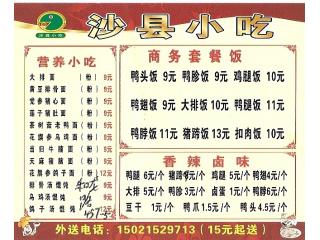 沙县小吃
沙县小吃
营养小吃
大排面(粉) 9元
黄豆排骨面(粉) 9元
党参猪心面(粉) 9元
莲子猪肚面(粉) 9元
茶树菇老鸭面(粉) 9元
花旗参乌鸡面(粉) 9元
当归牛腩面(粉) 9元
天麻猪脑面(粉)
花旗参鸽子面(粉) 12元
排骨汤馄饨 9元
乌鸡汤馄饨
鸽子汤馄饨
商务套餐饭
鸭头饭 9元 鸭胗饭 9元 鸡腿饭 10元
鸭翅饭 9元 大排饭 10元 鸭腿饭 11元
鸭脖饭 11元 猪蹄饭 13元 扣肉饭 10元
香辣卤味
鸭腿 6元/个 猪蹄 元/个 鸡腿 5元/个 鸭翅 4元/个
大排 5元/个 鸭胗 3元/个 卤蛋 1元/个 鸭脖 6元/个
豆干 1元/个 鸭爪 1.5元/个 鸭头 4.5元/个
外送电话：15021529713（15元起送）